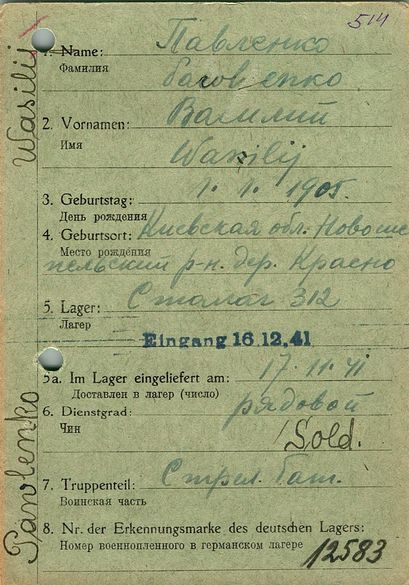 514
1. Name: Павленко
Фамилия
2. Vornamen: Василий
Имя
Wasilij
3. Geburtstag: 1. 1. 1905.
День рождения
4. Geburtsort: Киевская обл. Новоше
Место рождения
пельский р-н. дер. Красно
5. Lager: Сталаг 312
Лагер
Eingang 16.12.41
5a. Im Lager eingeliefert am: 17.11.41
Доставлен в лагер (число)
6. Dienstgrad: рядовой
Чин
Sold.
7. Truppenteil: Стрел. бат.
Воинская часть
8. Nr. der Erkennungsmarke des deutschen Lagers:
Номер военнопленного в германском лагере
12583
Wasilij
Pawlenko